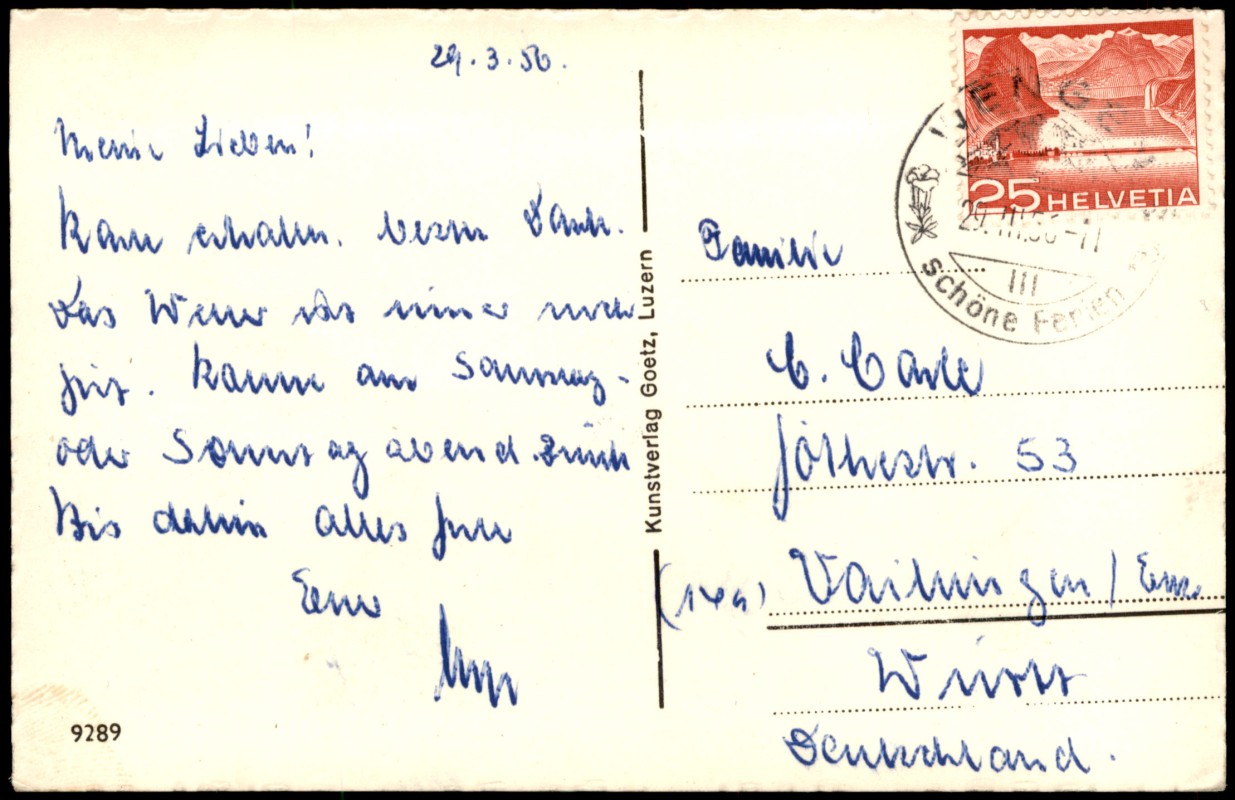 29.3.56.
Meine Lieben!
Karte erhalten. besten Dank.
Das Wetter ist immer noch
gut. Komme am Samstag-
oder Sonntag abend zurück
Bis dahin alles Gute
Eure
Kunstverlag Goetz, Luzern
9289
25 HELVETIA
WENGEN
29.III.56-11
III
schöne Ferien
Familie
C. Carle
53
(14a) Vaihingen / Enz
Württ
Deutschland.